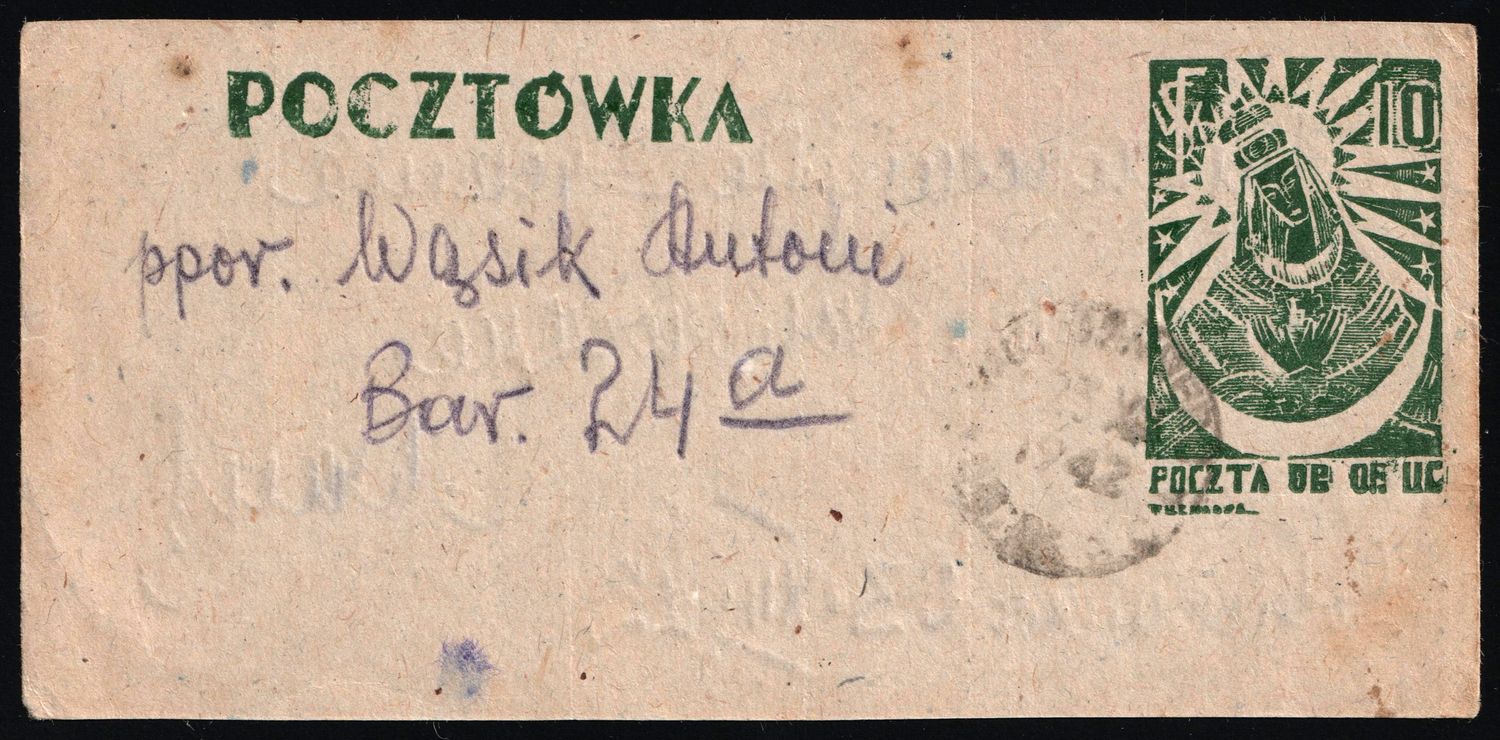 POCZTÓWKA
F 10
ppor. Wąsik Antoni
Bar. 24 a
1942
POCZTA OB OF IIC